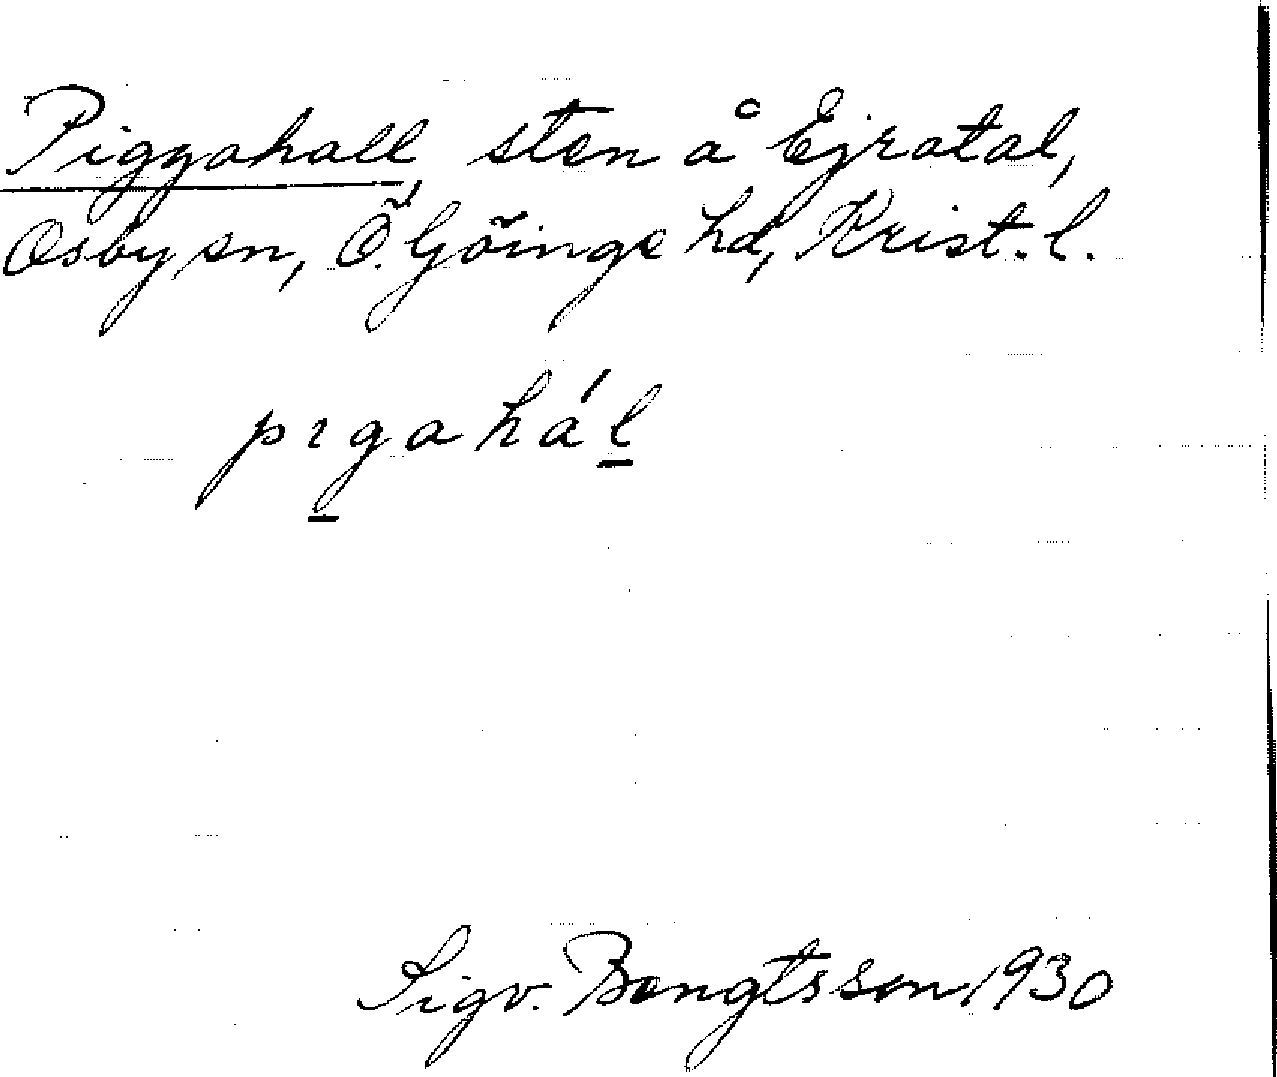 Piggahall, sten å Ejratal,
Osby sn, Ö. Göinge hd, Krist. l.
pıg̲ahál̲
Sigv. Bengtsson, 1930